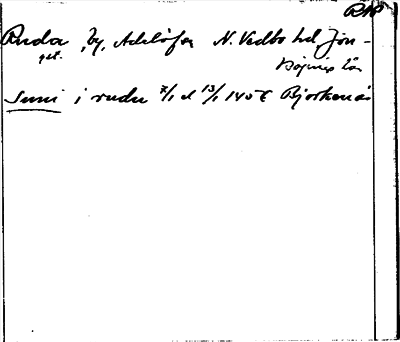 RAP
Ruda, by, Adelöfsn N. Vedbo hd, Jön-
gel. köpings län
Suni i rudu 7/1 el 13/1 1407 Björkenäs